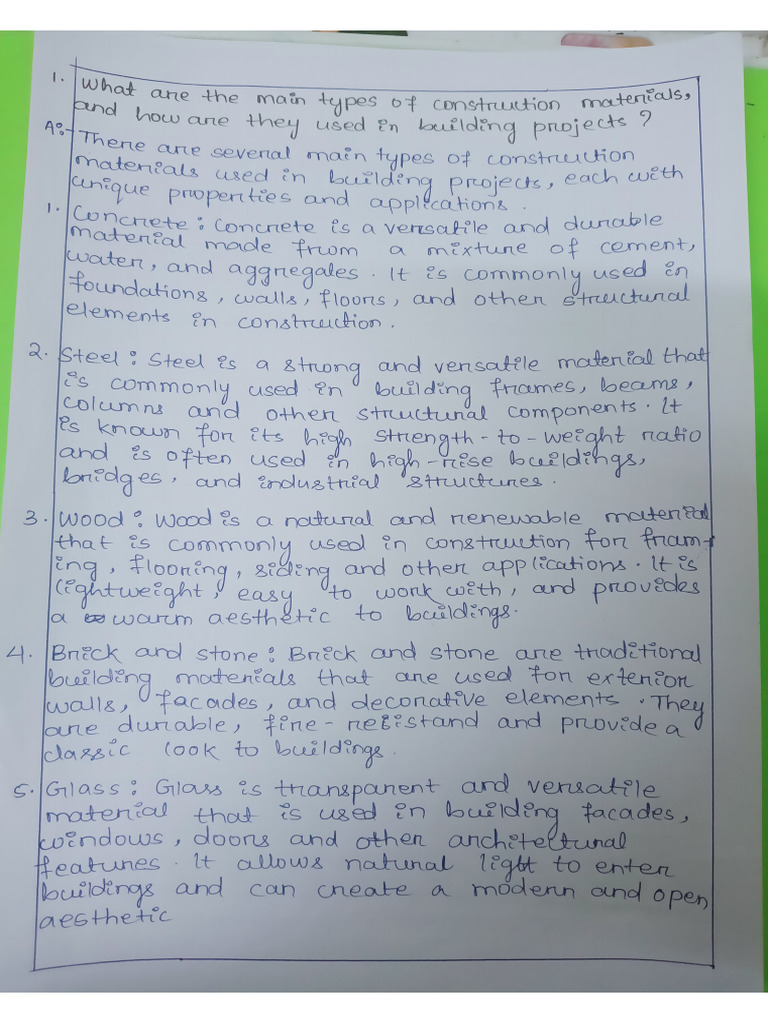 1. What are the main types of construction materials,
and how are they used in building projects?
A:- There are several main types of construction
materials used in building projects, each with
unique properties and applications.
1. Concrete: Concrete is a versatile and durable
material made from a mixture of cement,
water, and aggregales. It is commonly used in
foundations, walls, floors, and other structural
elements in construction.
2. Steel: Steel is a strong and versatile material that
is commonly used in building frames, beams,
columns and other structural components. It
is known for its high strength-to-weight ratio
and is often used in high-rise buildings,
bridges, and industrial structures.
3. Wood: Wood is a natural and renewable material
that is commonly used in construction for fram-
ing, flooring, siding and other applications. It is
lightweight, easy to work with, and provides
a warm aesthetic to buildings.
4. Brick and stone: Brick and stone are traditional
building materials that are used for exterior
walls, facades, and decorative elements. They
are durable, fire-resistand and provide a
classic look to buildings.
5. Glass: Glass is transparent and versatile
material that is used in building facades,
windows, doors and other architectural
features. It allows natural light to enter
buildings and can create a modern and open
aesthetic